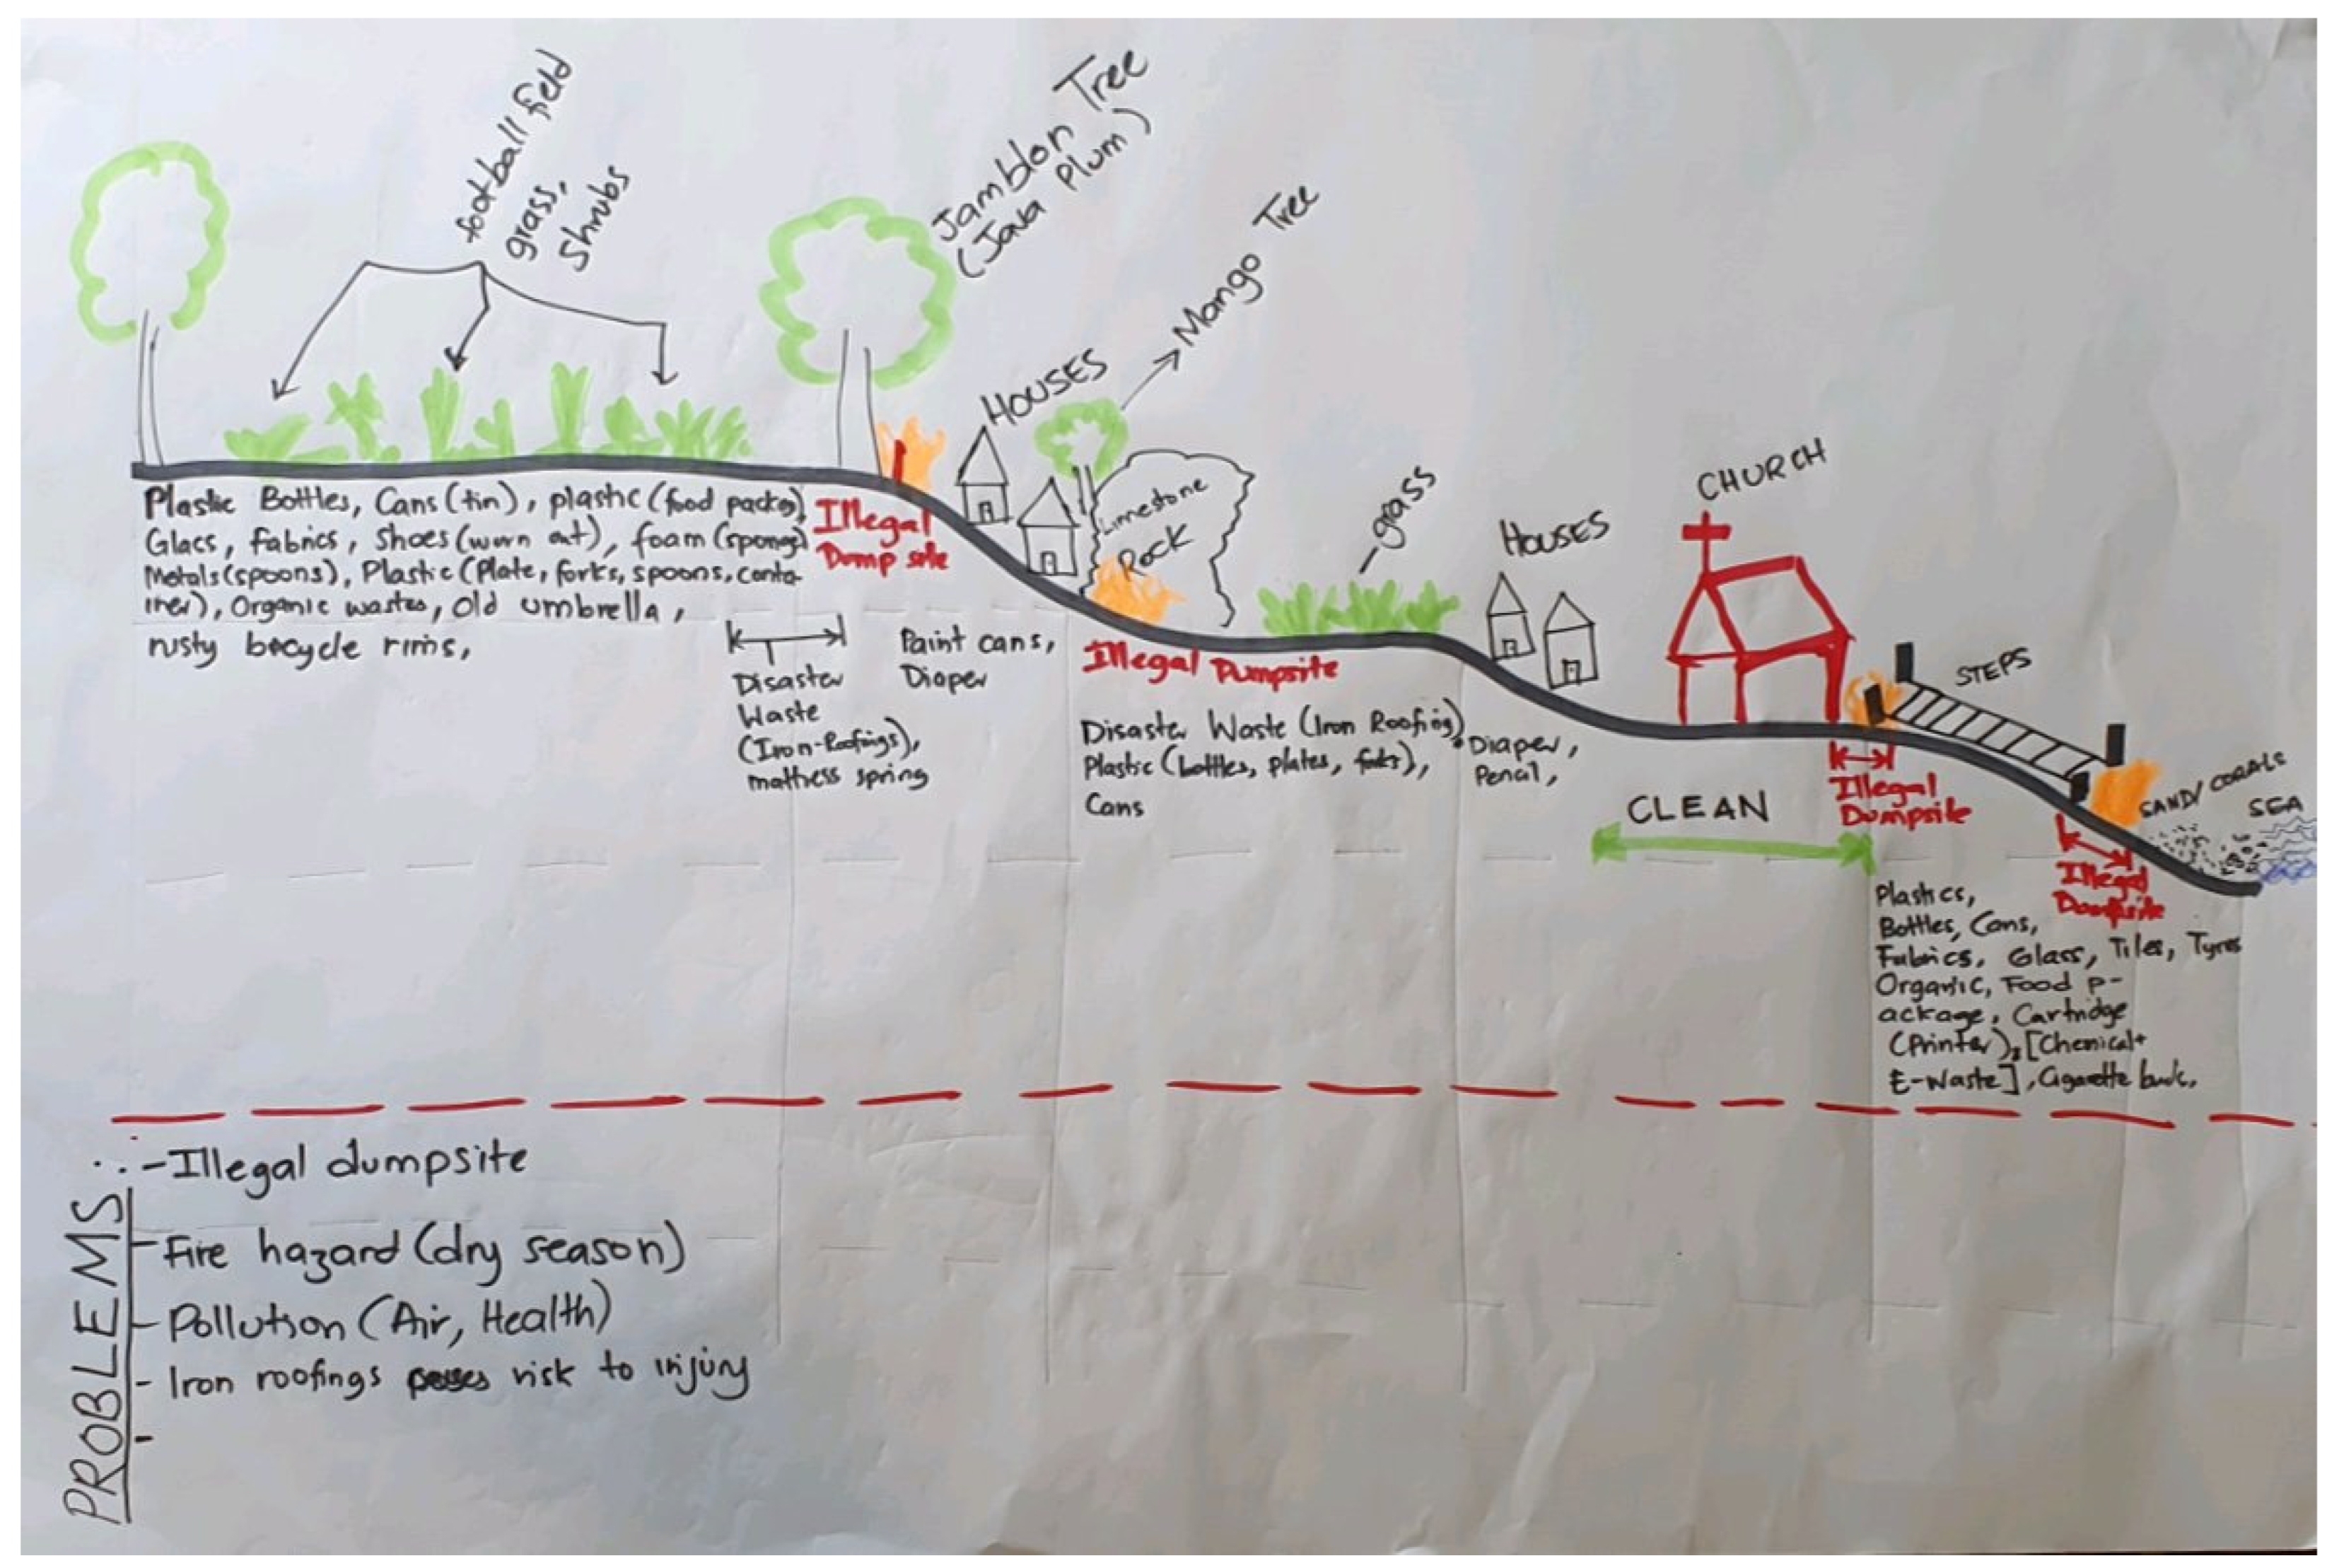 football field
grass,
Shrubs
Jamblon Tree
(Java Plum)
Mango Tree
HOUSES
Limestone
Rock
-grass
HOUSES
CHURCH
STEPS
SAND/CORALS
SEA
Plastic Bottles, Cans (tin), plastic (food packs)
Glass, Fabrics, Shoes (worn out), foam (sponge)
Metals (spoons), Plastic (Plate, forks, spoons, conta-
iner), Organic wastes, Old umbrella,
rusty bicycle rims,
Illegal
Dump site
Disaster
Waste
(Iron-Roofings),
mattress spring
Paint cans,
Diaper
Illegal Dumpsite
Disaster Waste (Iron Roofing)
Plastic (bottles, plates, forks),
Cans
Diaper,
Pencil,
CLEAN
Illegal
Dumpsite
Illegal
Dumpsite
Plastics,
Bottles, Cans,
Fabrics, Glass, Tiles, Tyres
Organic, Food p-
ackage, Cartridge
(Printer), [Chemical+
E-Waste], Cigarette
PROBLEMS
-Illegal dumpsite
-Fire hazard (dry season)
-Pollution (Air, Health)
-Iron roofings poses risk to injury
-